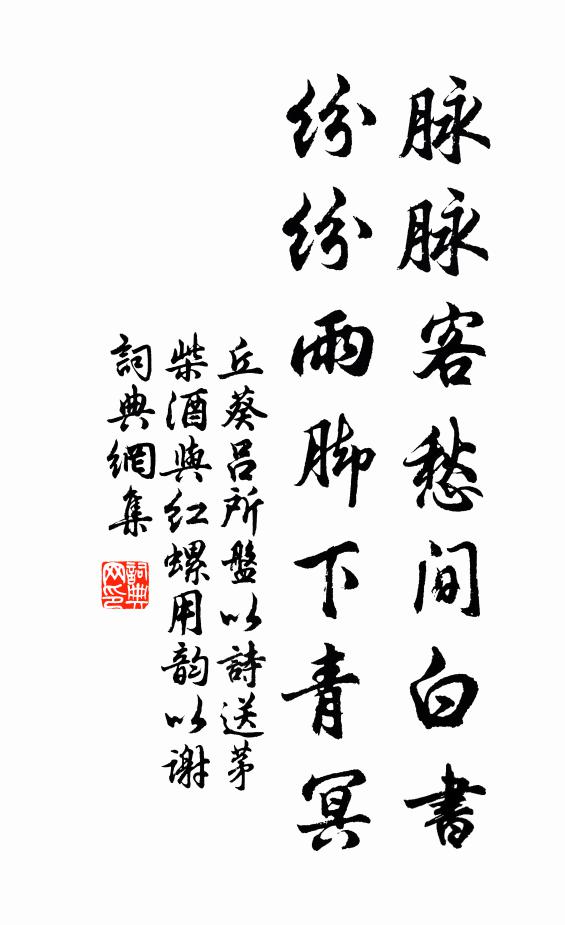 脉脉客愁间白書
纷纷雨脚下青冥
丘葵吕所盤以詩送茅
柴酒與红螺用韵以谢
詞典網集
詞典网印